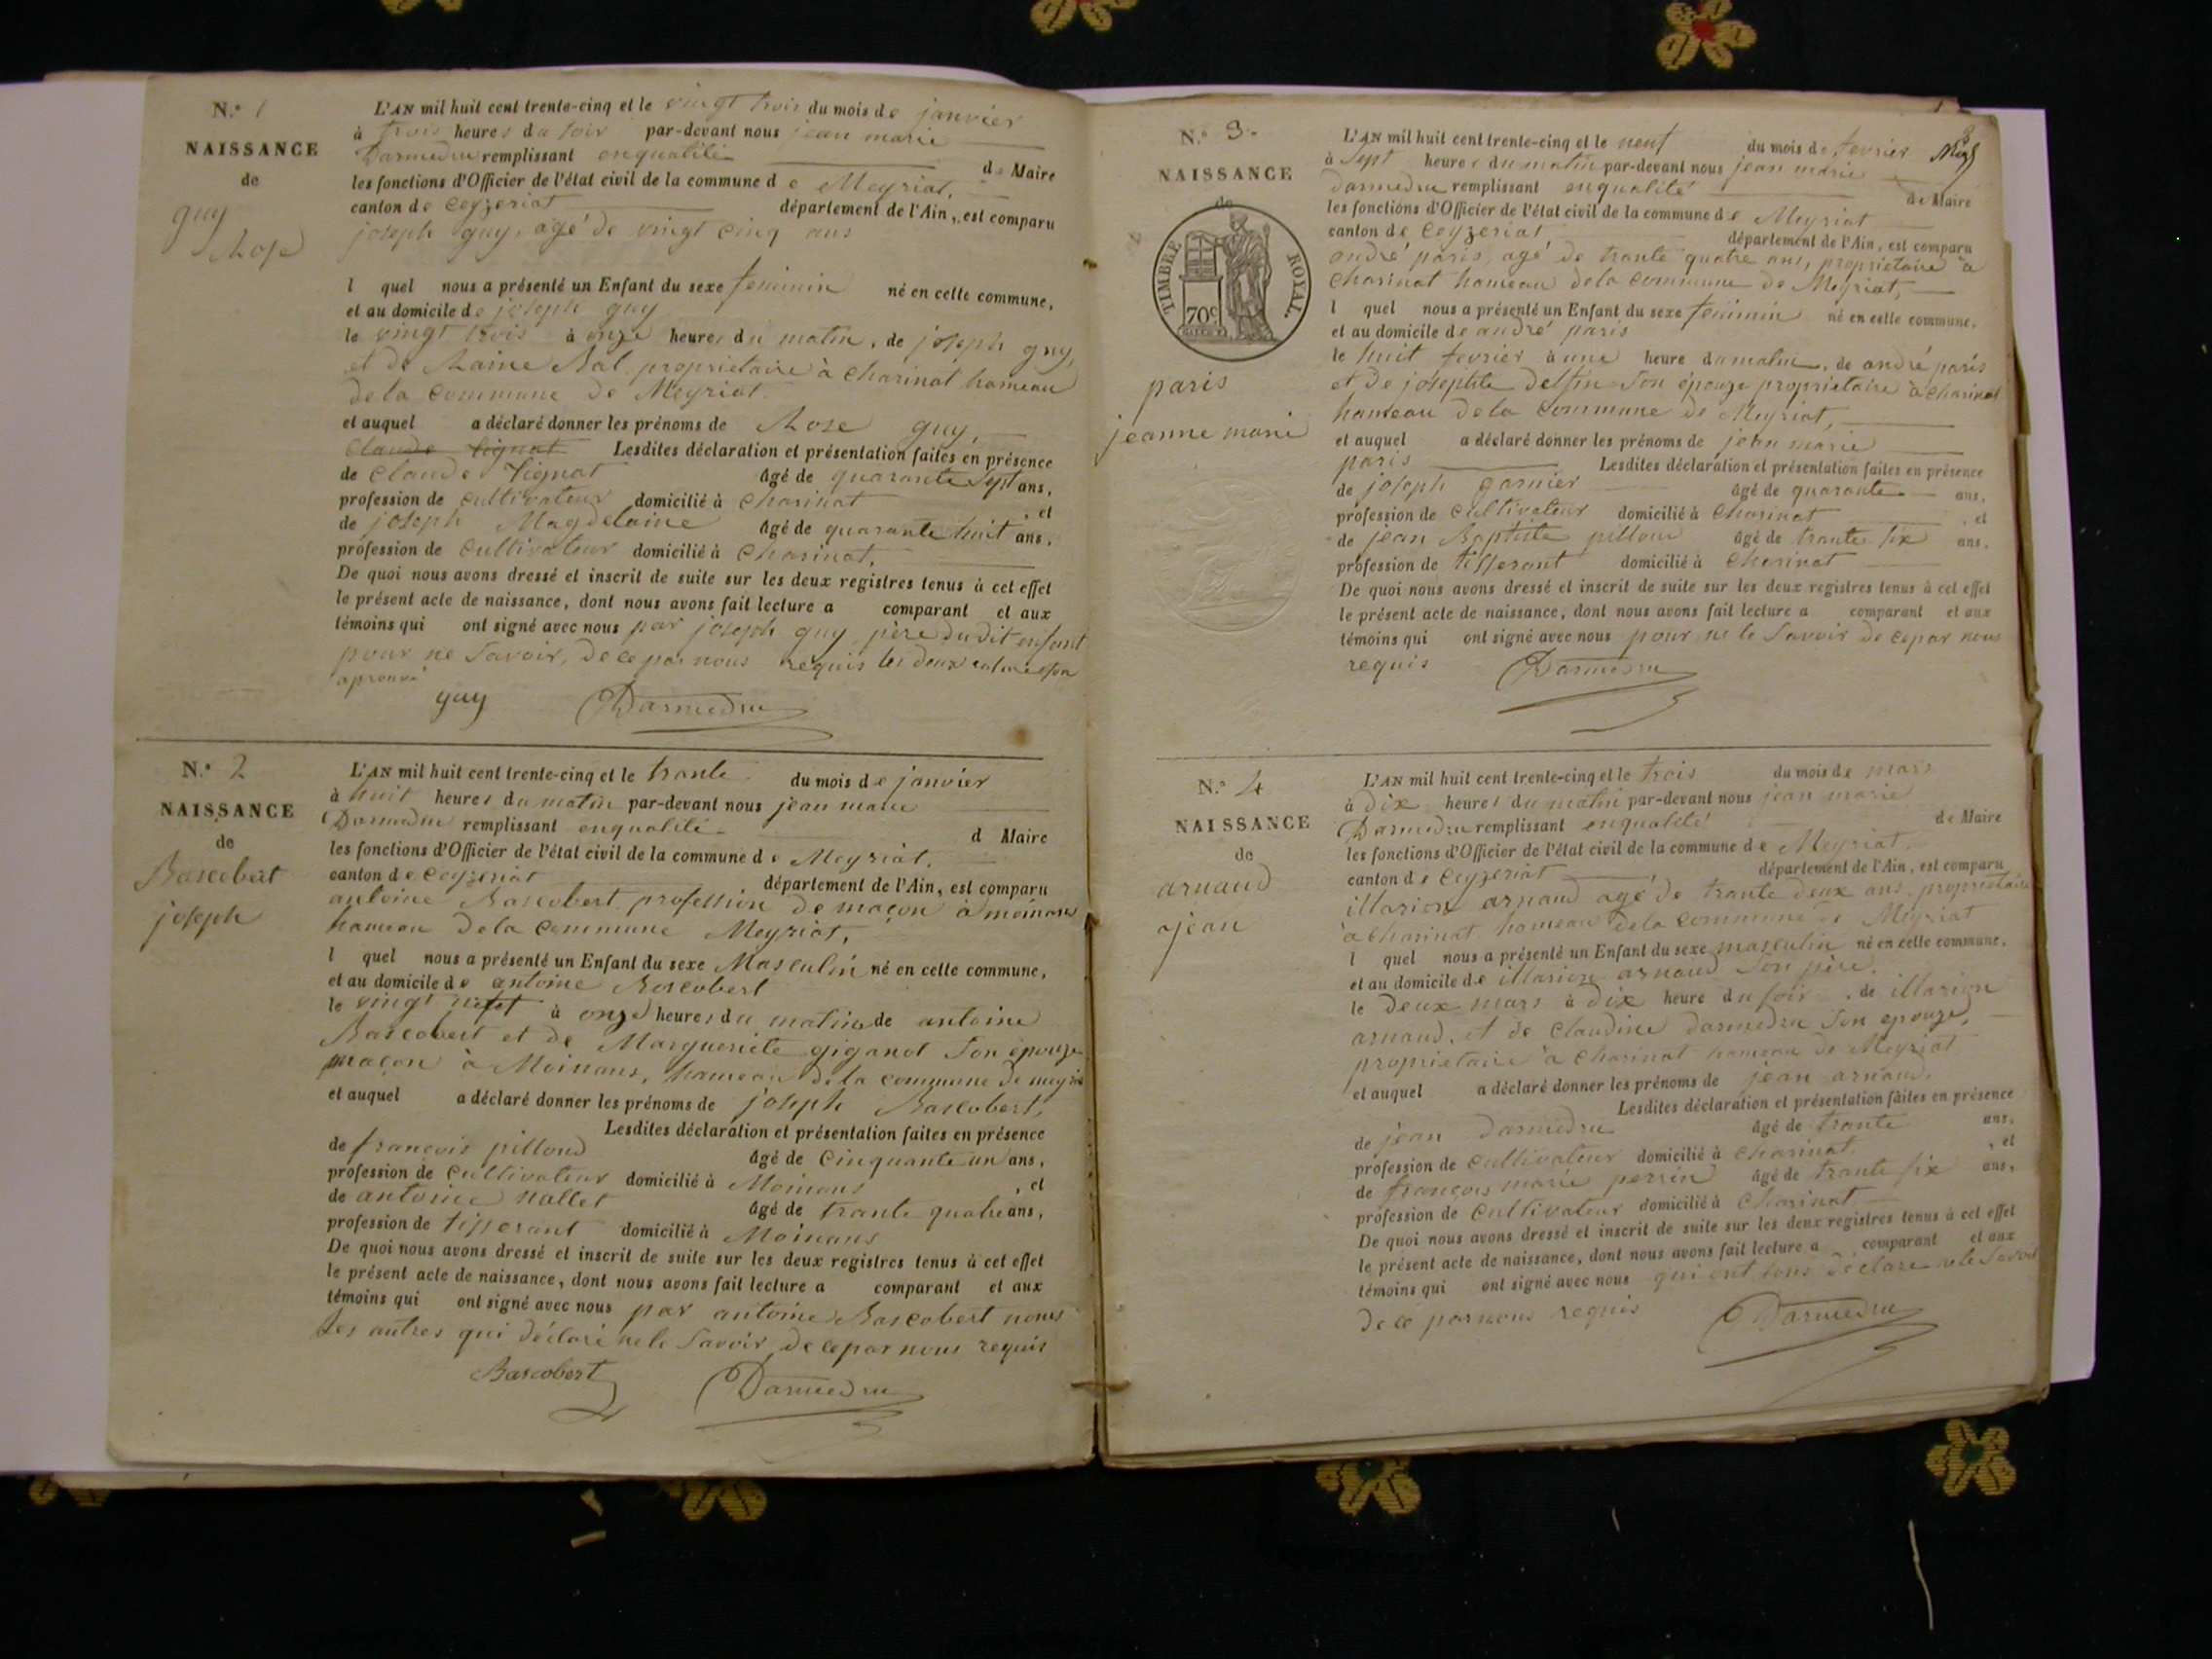 N.º 1
NAISSANCE
de
guy
Rose
L'AN mil huit cent trente-cinq et le vingt trois du mois de janvier
à trois heures du soir par-devant nous jean marie
Darmedru remplissant enqualité de Maire
les fonctions d'Officier de l'état civil de la commune de Meyriat,
canton de Ceyzeriat département de l'Ain, est comparu
joseph guy, agé de vingt cinq ans
l quel nous a présenté un Enfant du sexe feminin né en cette commune,
et au domicile de joseph guy
le vingt trois à onze heures du matin, de joseph guy,
et de propriétaire à Charinat hameau
de la commune de Meyriat.
et auquel a déclaré donner les prénoms de Rose guy,
Lesdites déclaration et présentation faites en présence
de Claude Tignat âgé de quarante sept ans,
profession de cultivateur domicilié à Charinat , et
de joseph Magdelaine âgé de quarante huit ans,
profession de cultivateur domicilié à Charinat,
De quoi nous avons dressé et inscrit de suite sur les deux registres tenus à cet effet
le présent acte de naissance, dont nous avons fait lecture a comparant et aux
témoins qui ont signé avec nous par joseph guy, père du dit enfant
pour ne savoir, de ce par nous requis les deux
aprouvé
guy Darmedru
N.º 2
NAISSANCE
de
Bascobert
joseph
L'AN mil huit cent trente-cinq et le trante du mois de janvier
à huit heures du matin par-devant nous jean marie
Darmedru remplissant enqualité d Maire
les fonctions d'Officier de l'état civil de la commune de Meyriat,
canton de Ceyzeriat département de l'Ain, est comparu
antoine Bascobert profession de maçon à moinans
hameau de la commune Meyriat,
l quel nous a présenté un Enfant du sexe Masculin né en cette commune,
et au domicile de antoine Bascobert
le vingt neuf à onze heures du matin de antoine
Bascobert et de Margueriete giganot son épouze
maçon à Moinans, hameau de la commune de meyriat
et auquel a déclaré donner les prénoms de joseph Bascobert,
Lesdites déclaration et présentation faites en présence
de françois pilloud âgé de Cinquante un ans,
profession de cultivateur domicilié à Moinans , et
de antoine Nallet âgé de trante quatre ans,
profession de tisserant domicilié à Moinans
De quoi nous avons dressé et inscrit de suite sur les deux registres tenus à cet effet
le présent acte de naissance, dont nous avons fait lecture a comparant et aux
témoins qui ont signé avec nous par antoine Bascobert nous
les autres qui déclaré ne le savoir, de ce par nous requis
Bascobert Darmedru
N.º 3.
NAISSANCE
de
TIMBRE ROYAL.
70c
paris
jeanne marie
L'AN mil huit cent trente-cinq et le neuf du mois de fevrier
à sept heures du matin par-devant nous jean marie
Darmedru remplissant enqualité de Maire
les fonctions d'Officier de l'état civil de la commune de Meyriat
canton de Ceyzeriat département de l'Ain, est comparu
andré paris, agé de trante quatre ans, propriétaire à
Charinat hameau de la commune de Meyriat,
l quel nous a présenté un Enfant du sexe feminin né en cette commune,
et au domicile de andré paris
le huit fevrier à une heure du matin, de andré paris
et de josephte Delfin son épouze propriétaire à Charinat
hameau de la commune de Meyriat,
et auquel a déclaré donner les prénoms de jean marie
paris Lesdites déclaration et présentation faites en présence
de joseph garnier âgé de quarante ans,
profession de cultivateur domicilié à Charinat , et
de jean Baptiste pilloud âgé de trante six ans,
profession de tisserant domicilié à Charinat
De quoi nous avons dressé et inscrit de suite sur les deux registres tenus à cet effet
le présent acte de naissance, dont nous avons fait lecture a comparant et aux
témoins qui ont signé avec nous pour ne le savoir de ce par nous
requis Darmedru
N.º 4
NAISSANCE
de
arnaud
jean
L'AN mil huit cent trente-cinq et le trois du mois de mars
à dix heures du matin par-devant nous jean marie
Darmedru remplissant enqualité de Maire
les fonctions d'Officier de l'état civil de la commune de Meyriat,
canton de Ceyzeriat département de l'Ain, est comparu
illarion arnaud agé de trante deux ans, propriétaire
à Charinat hameau de la commune de Meyriat
l quel nous a présenté un Enfant du sexe masculin né en cette commune,
et au domicile de illarion arnaud son père,
le deux mars à dix heure du soir, de illarion
arnaud, et de Claudine Darmedru son épouze,
propriétaire à Charinat hameau de Meyriat
et auquel a déclaré donner les prénoms de jean arnaud,
Lesdites déclaration et présentation faites en présence
de jean Darmedru âgé de trante ans,
profession de cultivateur domicilié à Charinat, , et
de françois marie perrin âgé de trante six ans,
profession de cultivateur domicilié à Charinat
De quoi nous avons dressé et inscrit de suite sur les deux registres tenus à cet effet
le présent acte de naissance, dont nous avons fait lecture a comparant et aux
témoins qui ont signé avec nous qui ont tous déclaré ne le savoir
de ce par nous requis Darmedru